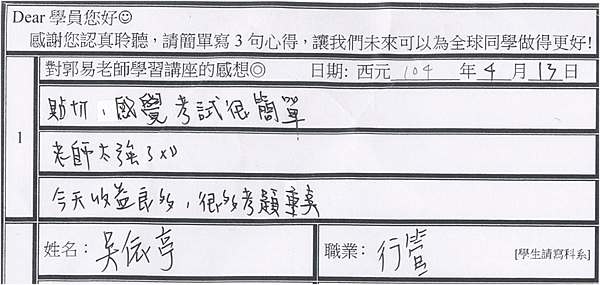 Dear 學員您好☺
感謝您認真聆聽，請簡單寫 3 句心得，讓我們未來可以為全球同學做得更好!
對郭易老師學習講座的感想◎ 日期: 西元 104 年 4 月 13 日
1
貼切，感覺考試很簡單
老師太強了XD
今天收益良多，很多考題
姓名： 吳依亭 職業： 行管 [學生請寫科系]